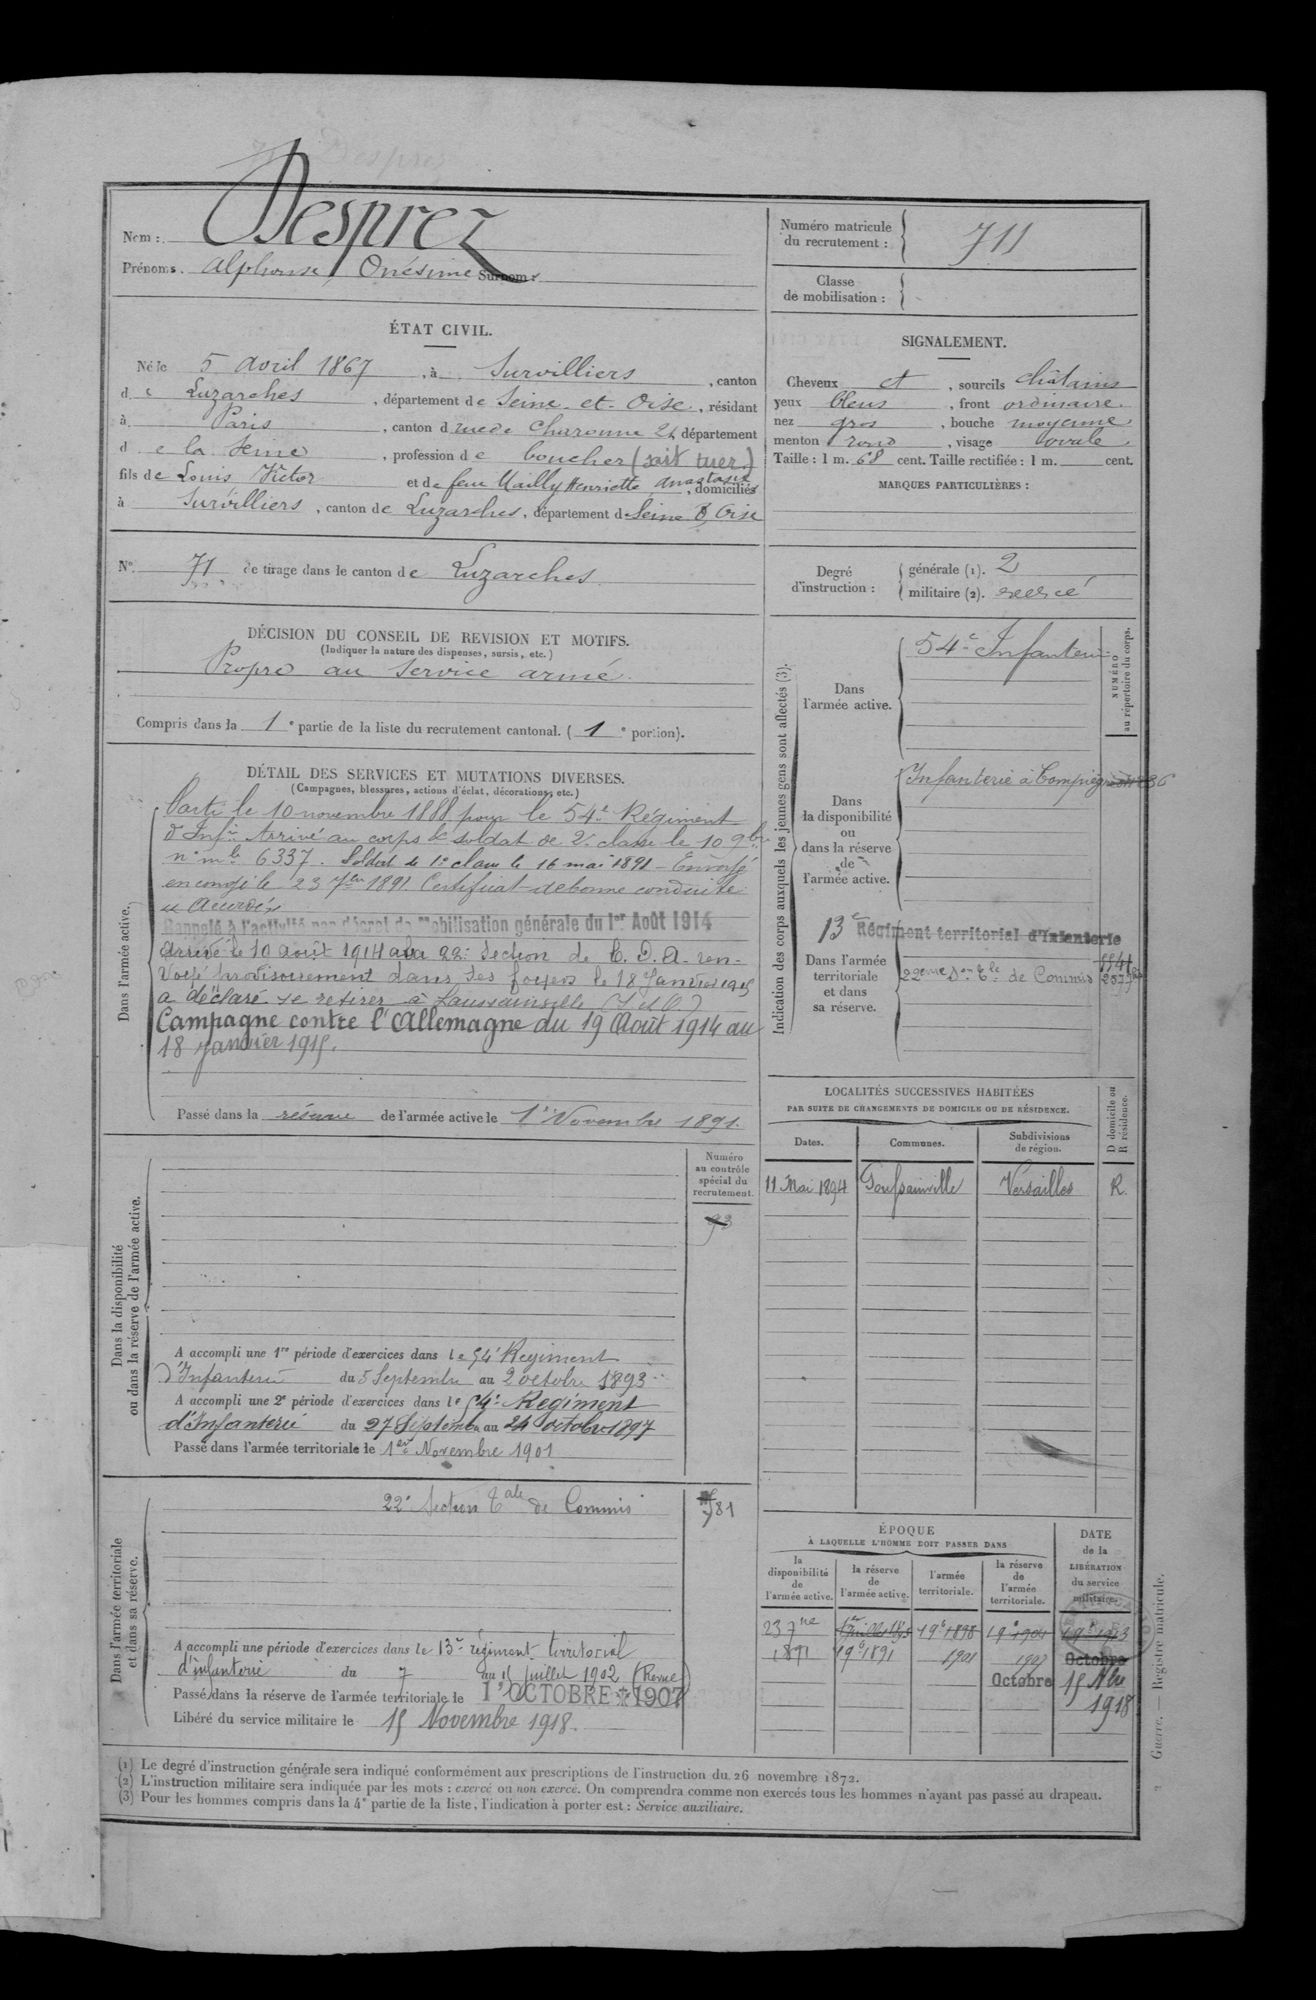 Desprez
Nom :
Prénoms. Alphonse, Onésime Surnom :
Numéro matricule
du recrutement : 711
Classe
de mobilisation :
ÉTAT CIVIL.
Né le 5 Avril 1867, à Survilliers, canton
de Luzarches, département de Seine-et-Oise, résidant
à Paris, canton d rue de Charonne 24 département
de la Seine, profession de boucher (sait tuer)
fils de Louis Victor et de feue Mailly Henriette Anastasie, domiciliés
à Survilliers, canton de Luzarches, département de Seine & Oise
SIGNALEMENT.
Cheveux et, sourcils châtains
yeux bleus, front ordinaire
nez gros, bouche moyenne
menton rond, visage ovale
Taille : 1 m. 68 cent. Taille rectifiée : 1 m. cent.
MARQUES PARTICULIÈRES :
N° 71 de tirage dans le canton de Luzarches
Degré
d'instruction :
générale (1). 2
militaire (2). exercé
DÉCISION DU CONSEIL DE REVISION ET MOTIFS.
(Indiquer la nature des dispenses, sursis, etc.)
Propre au service armé
Compris dans la 1e partie de la liste du recrutement cantonal. (1e portion).
DÉTAIL DES SERVICES ET MUTATIONS DIVERSES.
(Campagnes, blessures, actions d'éclat, décorations, etc.)
Dans l'armée active.
Parti le 10 novembre 1888 pour le 54e Régiment
d'Infie Arrivé au corps & soldat de 2e classe le 10 9bre
n° mle 6337. Soldat de 1e classe le 16 mai 1891 - Envoyé
en congé le 23 7bre 1891 Certificat de bonne conduite
"Accordé"
Rappelé à l'activité par décret de mobilisation générale du 1er Août 1914
Arrivé le 10 août 1914 à la 22e Section de C. O. A. ren-
voyé provisoirement dans ses foyers le 18 Janvier 1915
a déclaré se retirer à Goussainville (S et O.)
Campagne contre l'Allemagne du 19 Août 1914 au
18 Janvier 1915.
Passé dans la réserve de l'armée active le 1er Novembre 1891.
Indication des corps auxquels les jeunes gens sont affectés (3).
NUMÉRO
au répertoire du corps.
Dans
l'armée active.
54e Infanterie
Dans
la disponibilité
ou
dans la réserve
de
l'armée active.
Infanterie à Compiègne
Dans l'armée
territoriale
et dans
sa réserve.
13e Régiment territorial d'Infanterie
22eme Son Tle de Commis
LOCALITÉS SUCCESSIVES HABITÉES
PAR SUITE DE CHANGEMENTS DE DOMICILE OU DE RÉSIDENCE.
Dates. Communes. Subdivisions
de région.
D domicile ou
R résidence.
11 Mai 1894 Goussainville Versailles R.
Dans la disponibilité
ou dans la réserve de l'armée active.
Numéro
au contrôle
spécial du
recrutement.
A accompli une 1re période d'exercices dans le 54e Régiment
d'Infanterie du 5 Septembre au 2 octobre 1893
A accompli une 2e période d'exercices dans le 54e Régiment
d'Infanterie du 27 Septembre au 24 octobre 1897
Passé dans l'armée territoriale le 1er Novembre 1901
Dans l'armée territoriale
et dans sa réserve.
22e Section Tale de Commis
781
A accompli une période d'exercices dans le 13e régiment territorial
d'infanterie du 7 au 15 juillet 1902 (Revue)
Passé dans la réserve de l'armée territoriale le 1er OCTOBRE 1907
Libéré du service militaire le 15 Novembre 1918.
ÉPOQUE
À LAQUELLE L'HOMME DOIT PASSER DANS
la
disponibilité
de
l'armée active.
la réserve
de
l'armée active.
l'armée
territoriale.
la réserve
de
l'armée
territoriale.
DATE
de la
LIBÉRATION
du service
militaire.
23 7bre
1891
1898
1901
1907
Octobre
15 Nbre
1918
(1) Le degré d'instruction générale sera indiqué conformément aux prescriptions de l'instruction du 26 novembre 1872.
(2) L'instruction militaire sera indiquée par les mots : exercé ou non exercé. On comprendra comme non exercés tous les hommes n'ayant pas passé au drapeau.
(3) Pour les hommes compris dans la 4e partie de la liste, l'indication à porter est : Service auxiliaire.
Guerre. — Registre matricule.